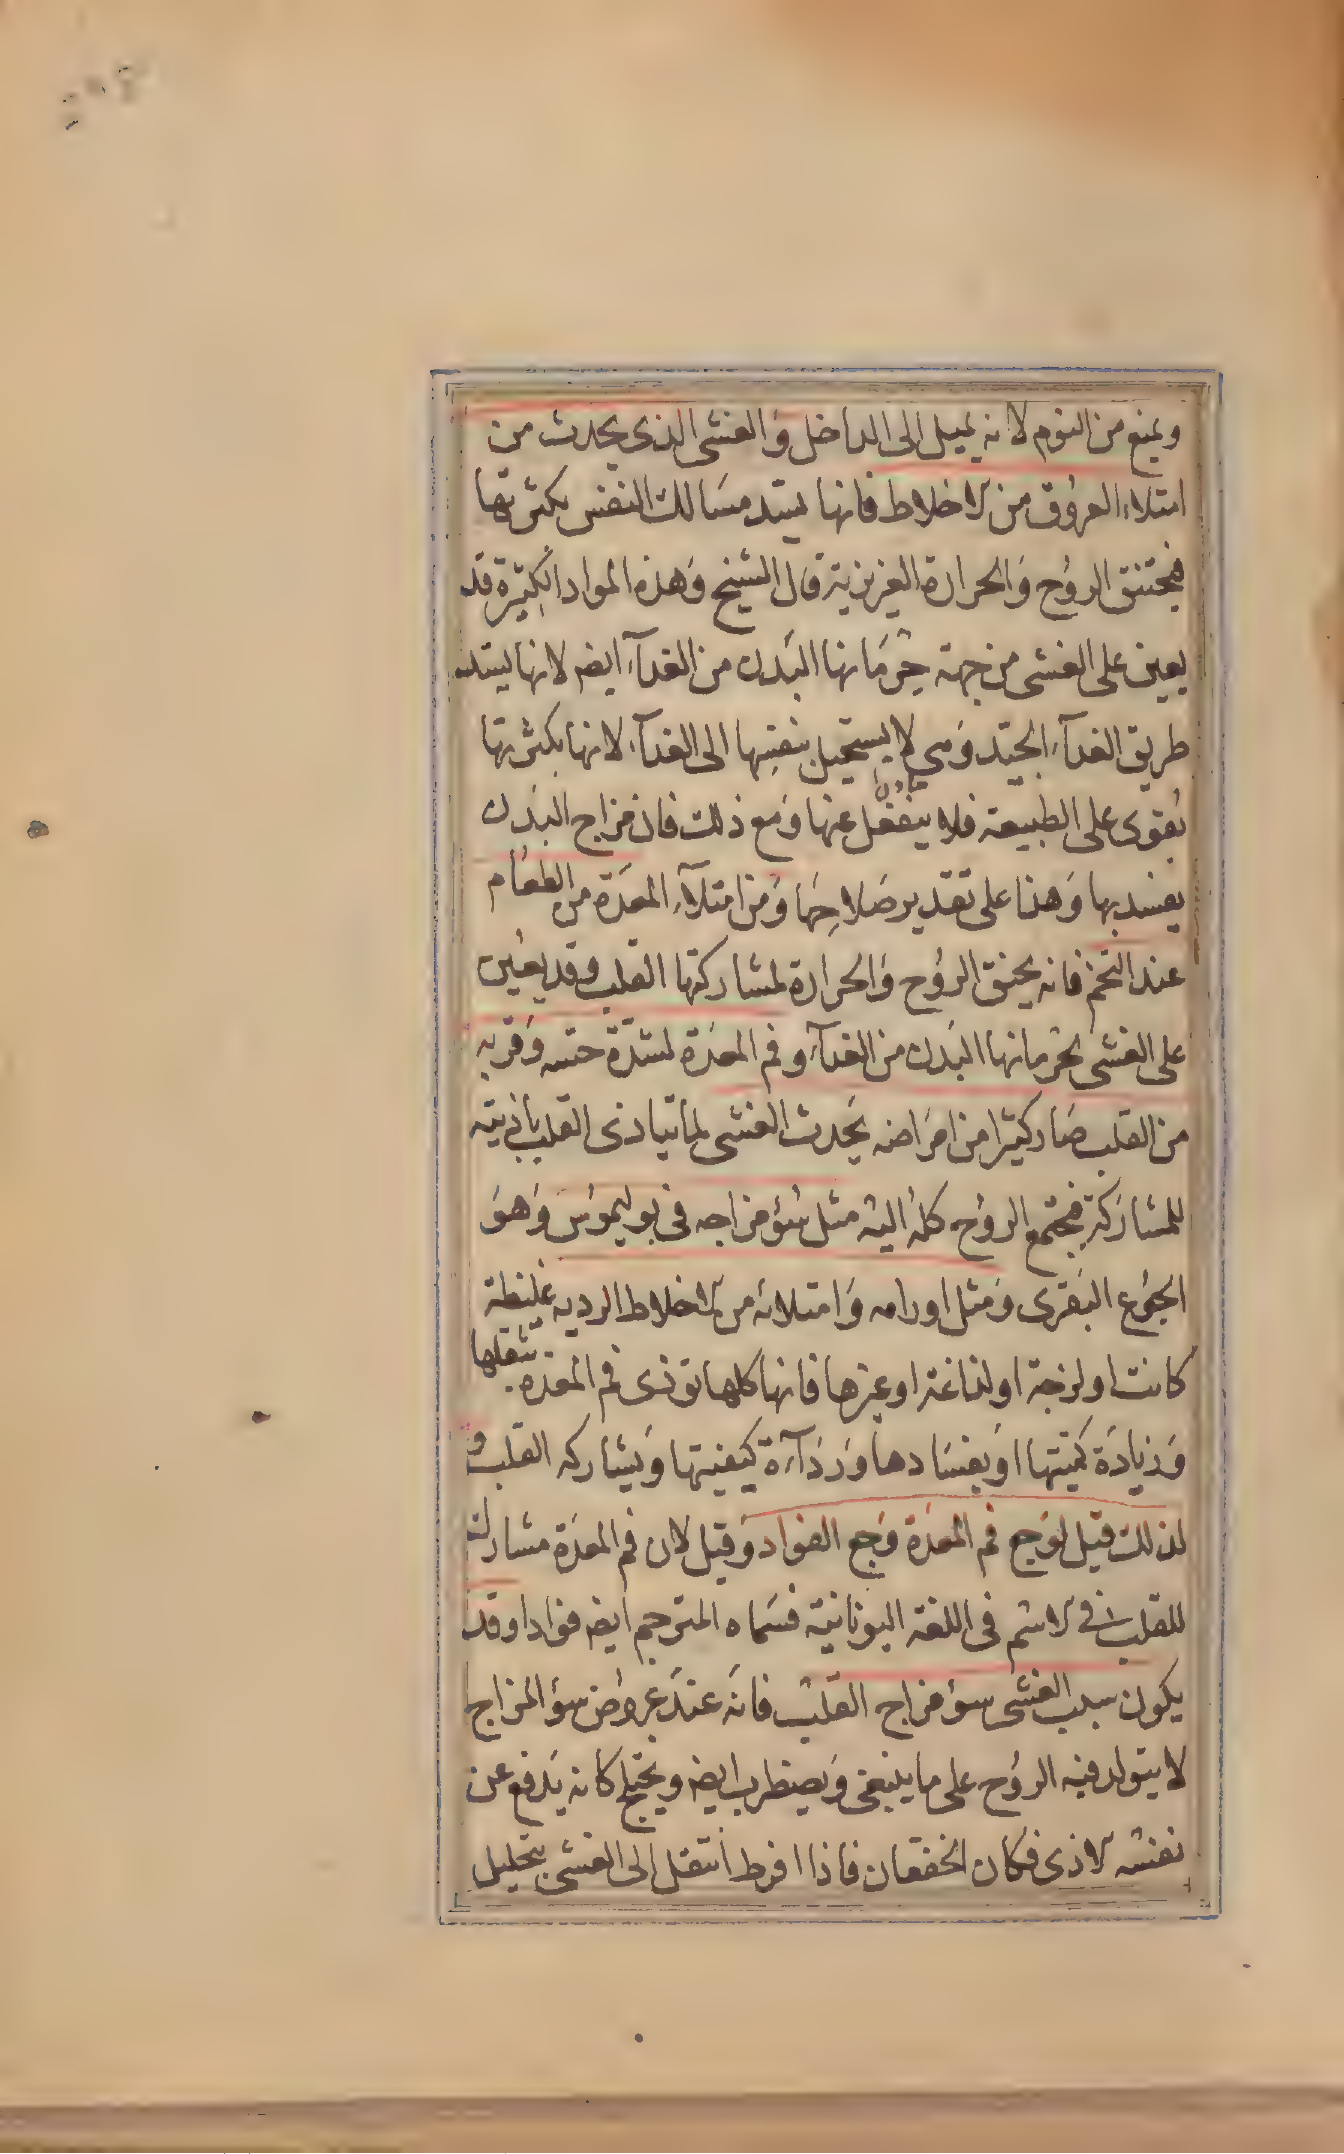 ويمنع من النوم لانه يميل الى الداخل والغشى الذى يحدث من
امتلاء العروق من الاخلاط فانها يسد مسالك النفس بكثرتها
فيختنق الروح والحرارة الغريزية قال الشيخ وهذه المواد الكثيرة قد
يعين على الغشى من جهة حرمانها البدن من الغدآء ايضه لانها يسد
طريق الغدآء الجيد وهى لا يستحيل بنفسها الى الغدآء لانها بكثرتها
يقوى على الطبيعة فلا ينفعل عنها ومع ذلك فان مزاج البدن
يفسد بها وهذا على تقدير صلاحها ومن امتلآء المعدة من الطعام
عند التخم فانه يخنق الروح والحرارة لمشاركتها القلب وقد يعين
على الغشى بحرمانها البدن من الغدآء وفم المعدة لشدة حسه وقربه
من القلب صار كثيرا من امراضه يحدث الغشى لما يتاذى القلب باذيته
للمشاركة فيجتمع الروح كله اليه مثل سؤ مزاجه فى بوليموس وهو
الجوع البقرى ومثل اورامه وامتلائه من الاخلاط الرديه غليظة
كانت او لزجة او لذاغة او غيرها فانها كلها توذى فم المعدة بثقلها
وزيادة كميتها او بفسادها وردآءة كيفيتها ويشاركه القلب و
لذلك قيل لوجع فم المعدة وجع الفواد وقيل لان فم المعدة مشارك
للقلب فى الاسم فى اللغة اليونانية فسماه المترجم ايضه فوادا وقد
يكون سبب الغشى سوء مزاج القلب فانه عند عروض سؤ المزاج
لا يتولد فيه الروح على ما ينبغى ويضطرب ايضه ويختلج كانه يدفع عن
نفسه الاذى فكان الخفقان فاذا افرط انتقل الى الغشى بتحليل